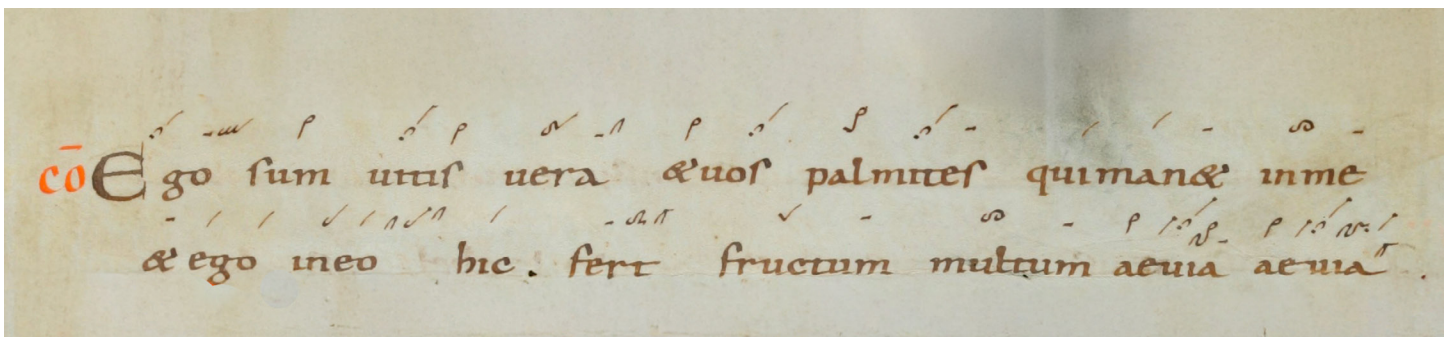 cō Ego sum uitis uera & uos palmites qui man& in me
& ego in eo hic . fert fructum multum aeuia aeuia .